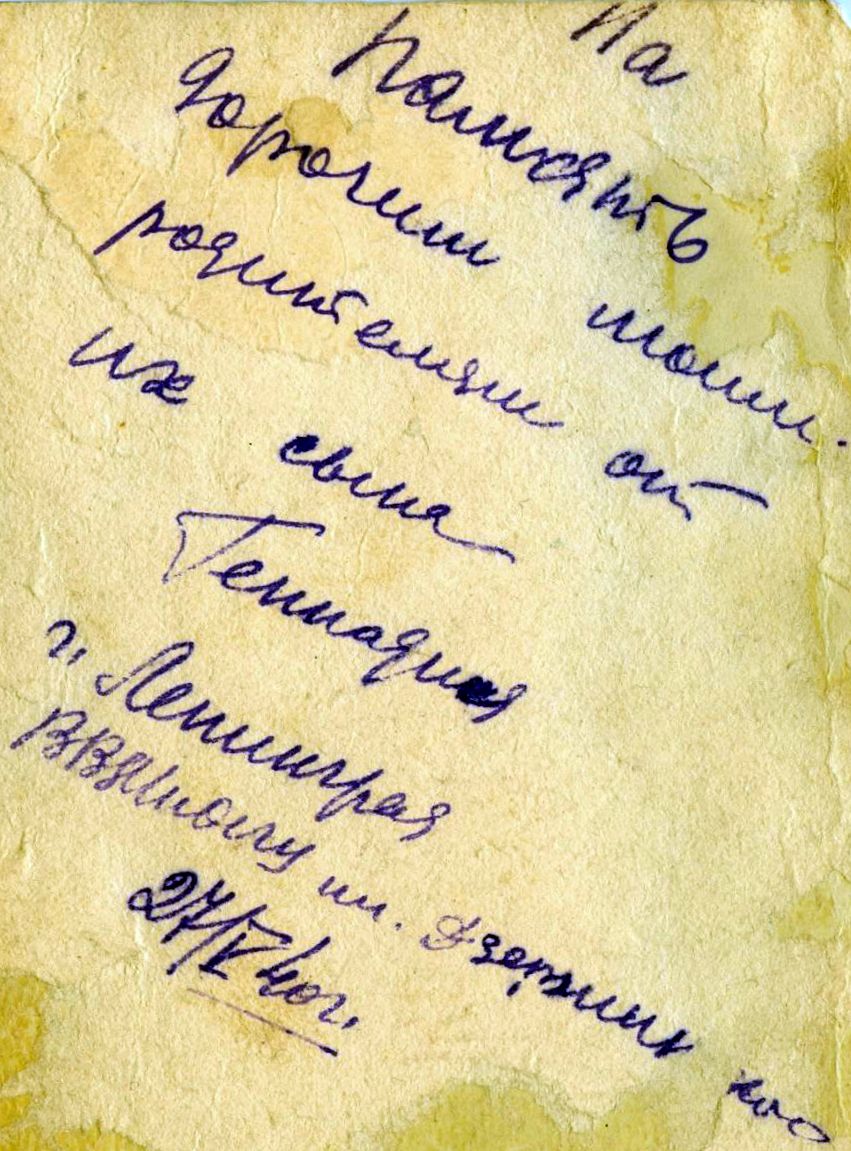 На
память
дорогим моим
родителям от
их сына
Геннадия
г. Ленинград
им. Дзержинского
27/V 40 г.